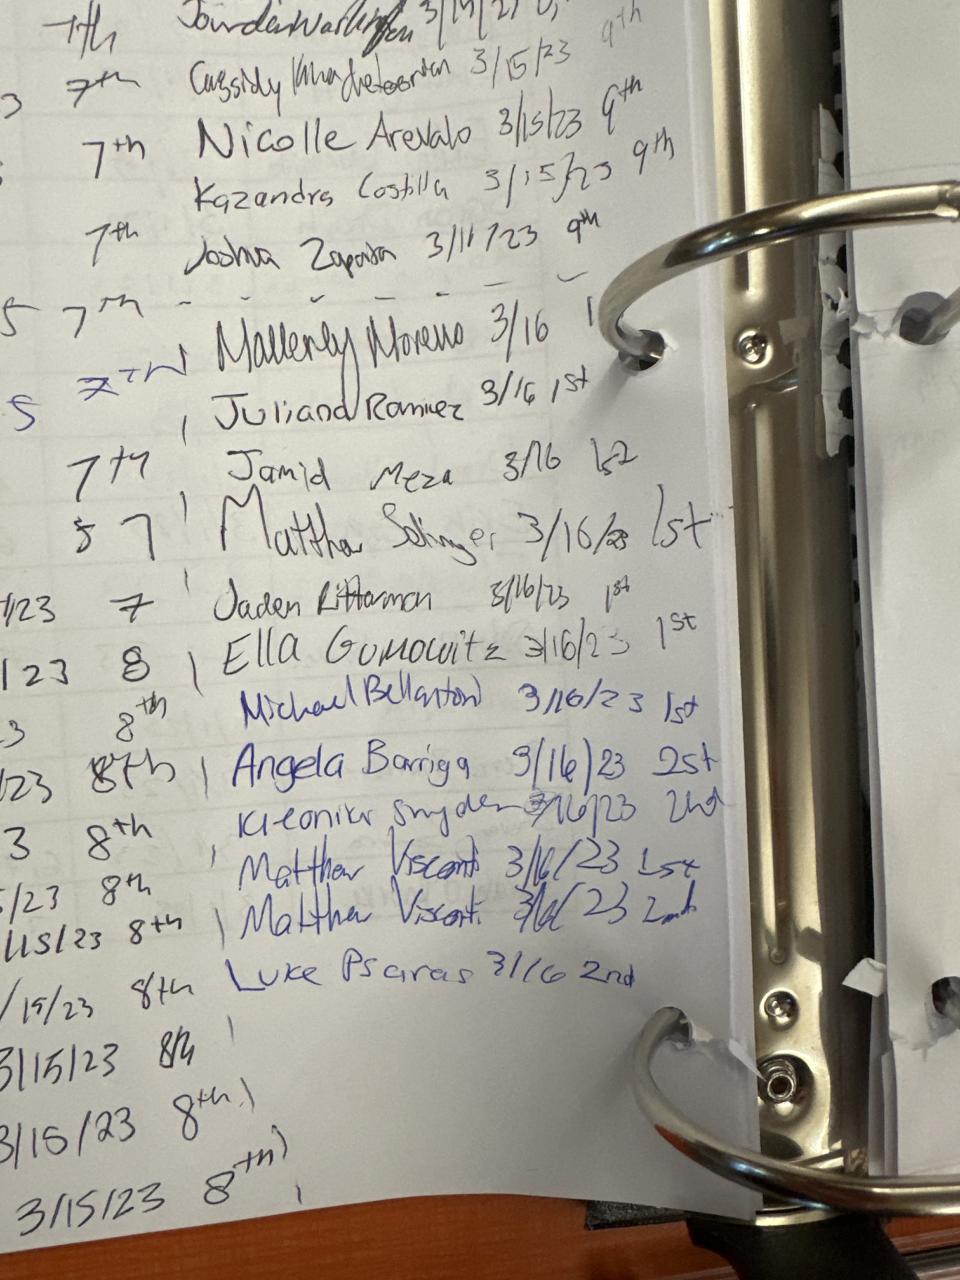 7th
7th
7th
7th
5 7th
5 7TH
7th
5 7
/23 7
/23 8
3 8th
/23 8th
3 8th
/23 8th
/15/23 8th
/15/23 8th
3/15/23 8th
3/15/23 8th
3/15/23 8th
Cassidy 3/15/23 9th
Nicolle Arevalo 3/15/23 9th
Kazandra Costilla 3/15/23 9th
Joshua 3/11/23 9th
Mallerly Moreno 3/16 1
Juliana Ramirez 3/16 1st
Jamid Meza 3/16
Matthew Solinger 3/16/23 1st
Jaden Ritterman 3/16/23 1st
Ella Gumowitz 3/16/23 1st
Michael 3/16/23 1st
Angela Barriga 3/16/23 2st
Snyder 3/16/23 2nd
Matthew Visconti 3/16/23 1st
Matthew Visconti 3/16/23 2nd
Luke Psaras 3/16 2nd